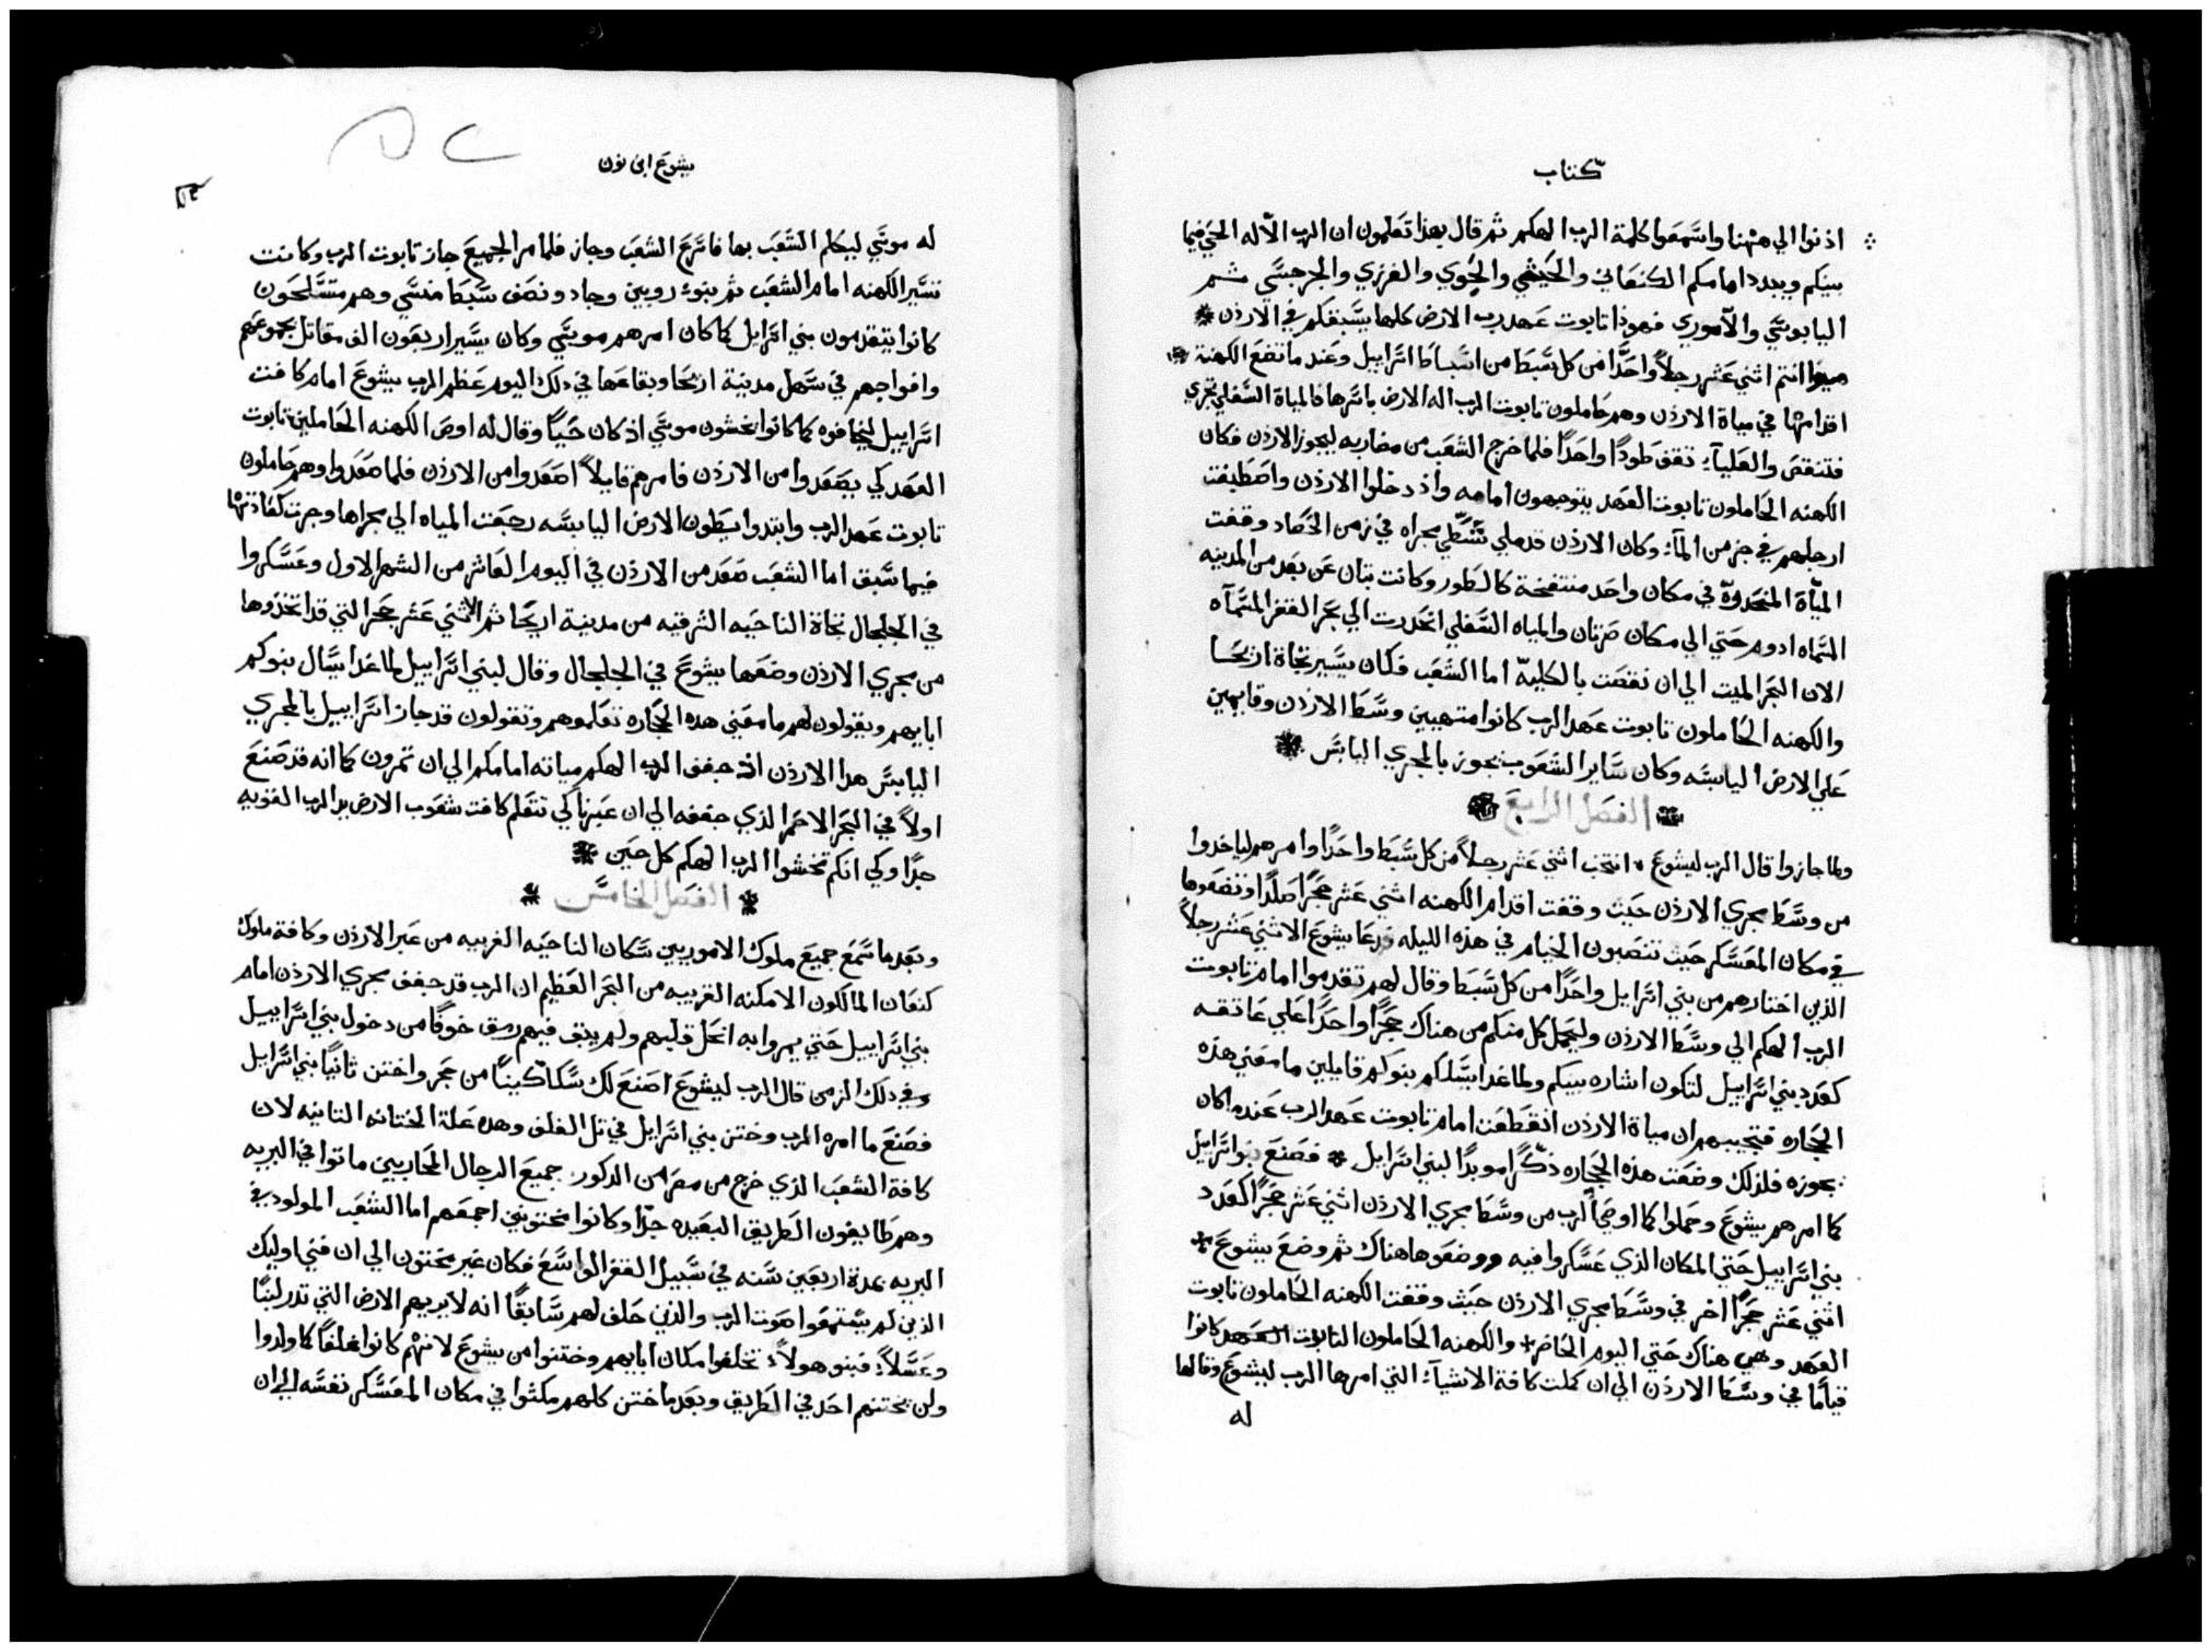 كتاب
اذنوا الي ههنا واسمعوا كلمة الرب الهكم ثم قال بهذا تعلمون ان الرب الاله الحي فيما
بينكم ويبدد امامكم الكنعاني والحيثي والحوي والفرزي والجرجسي ثم
اليابوسي والاموري فهوذا تابوت عهد رب الارض كلها يسبقكم في الاردن
انتم اثني عشر رجلاً واحدًا من كل سبط من اسباط اسراييل وعند ما تضع الكهنة
اقدامها في مياة الاردن وهم حاملون تابوت الرب اله الارض باسرها فالمياة السفلي تجري
فتنقص والعليآء تقف طودًا واحدًا فلما خرج الشعب من مضاربه ليجوز الاردن فكان
الكهنه الحاملون تابوت العهد يتوجهون امامه واذ دخلوا الاردن واصطبغت
ارجلهم في جز من المآء وكان الاردن قد ملي شطي مجراه في زمن الحصاد وقفت
المياة المنحدرة في مكان واحد منتفخة كالطور وكانت تبان عن بعد من المدينه
المسماه ادوم حتي الي مكان صرتان والمياه السفلي انحدرت الي بحر القفر المسمآه
الان البحر الميت الي ان نقصت بالكلية اما الشعب فكان يسير تجاة اريحا
والكهنه الحاملون تابوت عهد الرب كانوا متهيبين وسط الاردن وقايمين
علي الارض اليابسه وكان ساير الشعوب تجوز بالمجري اليابس
الفصل الرابع
ولما جازوا قال الرب ليشوع انتخب اثني عشر رجلاً من كل سبط واحدًا وامرهم لياخدوا
من وسط مجري الاردن حيث وقفت اقدام الكهنه اثني عشر حجرًا صلدًا وتضعوها
في مكان المعسكر حيث تنصبون الخيام في هذه الليله فدعا يشوع الاثني عشر رجلاً
الذين اختارهم من بني اسرايل واحدًا من كل سبط وقال لهم تقدموا امام تابوت
الرب الهكم الي وسط الاردن وليحمل كل منكم من هناك حجرًا واحدًا علي عاتقه
كعدد بني اسراييل لتكون اشاره بينكم ولما غدا يسلكم بنوكم قايلين ما معني هذه
الحجاره فتجيبهم ان مياة الاردن انقطعت امام تابوت عهد الرب عندما كان
يجوزه فلذلك وضعت هذه الحجاره ذكرًا موبدًا لبني اسرايل فصنع بنو اسرايل
كما امرهم يشوع وحملوا كما اوصي الرب من وسط مجري الاردن اثني عشر حجرًا كعدد
بني اسراييل حتي المكان الذي عسكروا فيه ووضعوها هناك ثم وضع يشوع
اثني عشر حجرًا اخر في وسط مجري الاردن حيث وقفت الكهنه الحاملون تابوت
العهد وهي هناك حتي اليوم الحاضر والكهنه الحاملون التابوت العهد كانوا
قيامًا في وسط الاردن الي ان كملت كافة الاشيآء التي امرها الرب ليشوع وقالها
له
يشوع ابن نون
له موسي ليكلم الشعب بها فاسرع الشعب وجاز فلما مر الجميع جاز تابوت الرب وكانت
تسير الكهنه امام الشعب ثم بنوء روبين وجاد ونصف سبط منسي وهم متسلحون
كانوا يتقدمون بني اسرايل كما كان امرهم موسي وكان يسير اربعون الف مقاتل بجموعهم
وافواجهم في سهل مدينة اريحا وبقاعها في دلك اليوم عظم الرب يشوع امام كافت
اسراييل ليخافوه كما كانوا يخشون موسي اذ كان حيًا وقال له اوص الكهنه الحاملين تابوت
العهد كي يصعدوا من الاردن فامرهم قايلاً اصعدوا من الاردن فلما صعدوا وهم حاملون
تابوت عهد الرب وابتدوا يطون الارض اليابسه رجعت المياه الي مجراها وجرت كعادتها
فيما سبق اما الشعب صعد من الاردن في اليوم العاشر من الشهر الاول وعسكروا
في الجلجال تجاة الناحيه الشرقيه من مدينة اريحا ثم الاثني عشر حجر التي قد اتخذوها
من مجري الاردن وضعها يشوع في الجلجال وقال لبني اسراييل لما غدا يسال بنوكم
ابايهم ويقولون لهم ما معني هده الحجاره تعلموهم وتقولون قد جاز اسراييل بالمجري
اليابس هدا الاردن اذ جفف الرب الهكم مياته امامكم الي ان تمرون كما انه قد صنع
اولاً في البحر الاحمر الذي جففه الي ان عبرنا كي تتعلم كافت شعوب الارض يد الرب القويه
جدًا وكي انكم تخشوا الرب الهكم كل حين
الفصل الخامس
وبعد ما سمع جميع ملوك الاموريين سكان الناحيه الغربيه من عبر الاردن وكافة ملوك
كنعان المالكون الامكنه القريبه من البحر العظيم ان الرب قد جفف مجري الاردن امام
بني اسراييل حتي يمروا به انحل قلبهم ولم يبق فيهم رمق خوفًا من دخول بني اسراييل
وفي دلك الزمن قال الرب ليشوع اصنع لك سكاكينًا من حجر واختن ثانيًا بني اسرايل
فصنع ما امره الرب وختن بني اسرايل في تل الغلف وهده علة الختانه التانيه لان
كافة الشعب الذي خرج من مصر من الدكور جميع الرجال المحاربين ماتوا في البريه
وهم طايفون الطريق البعيده جدًا وكانوا مختونين اجمعهم اما الشعب المولود في
البريه بمدة اربعين سنه في سبيل القفر الواسع فكان غير مختون الي ان فني اوليك
الذين لم يستمعوا صوت الرب والذين حلف لهم سابقًا انه لا يريهم الارض التي تدر لبنًا
وعسلاً فبنو هولاء تخلفوا مكان ابايهم وختنوا من يشوع لانهم كانوا غلفًا كما ولدوا
ولن يختنهم احد في الطريق وبعد ما ختن كلهم مكثوا في مكان المعسكر نفسه الي ان